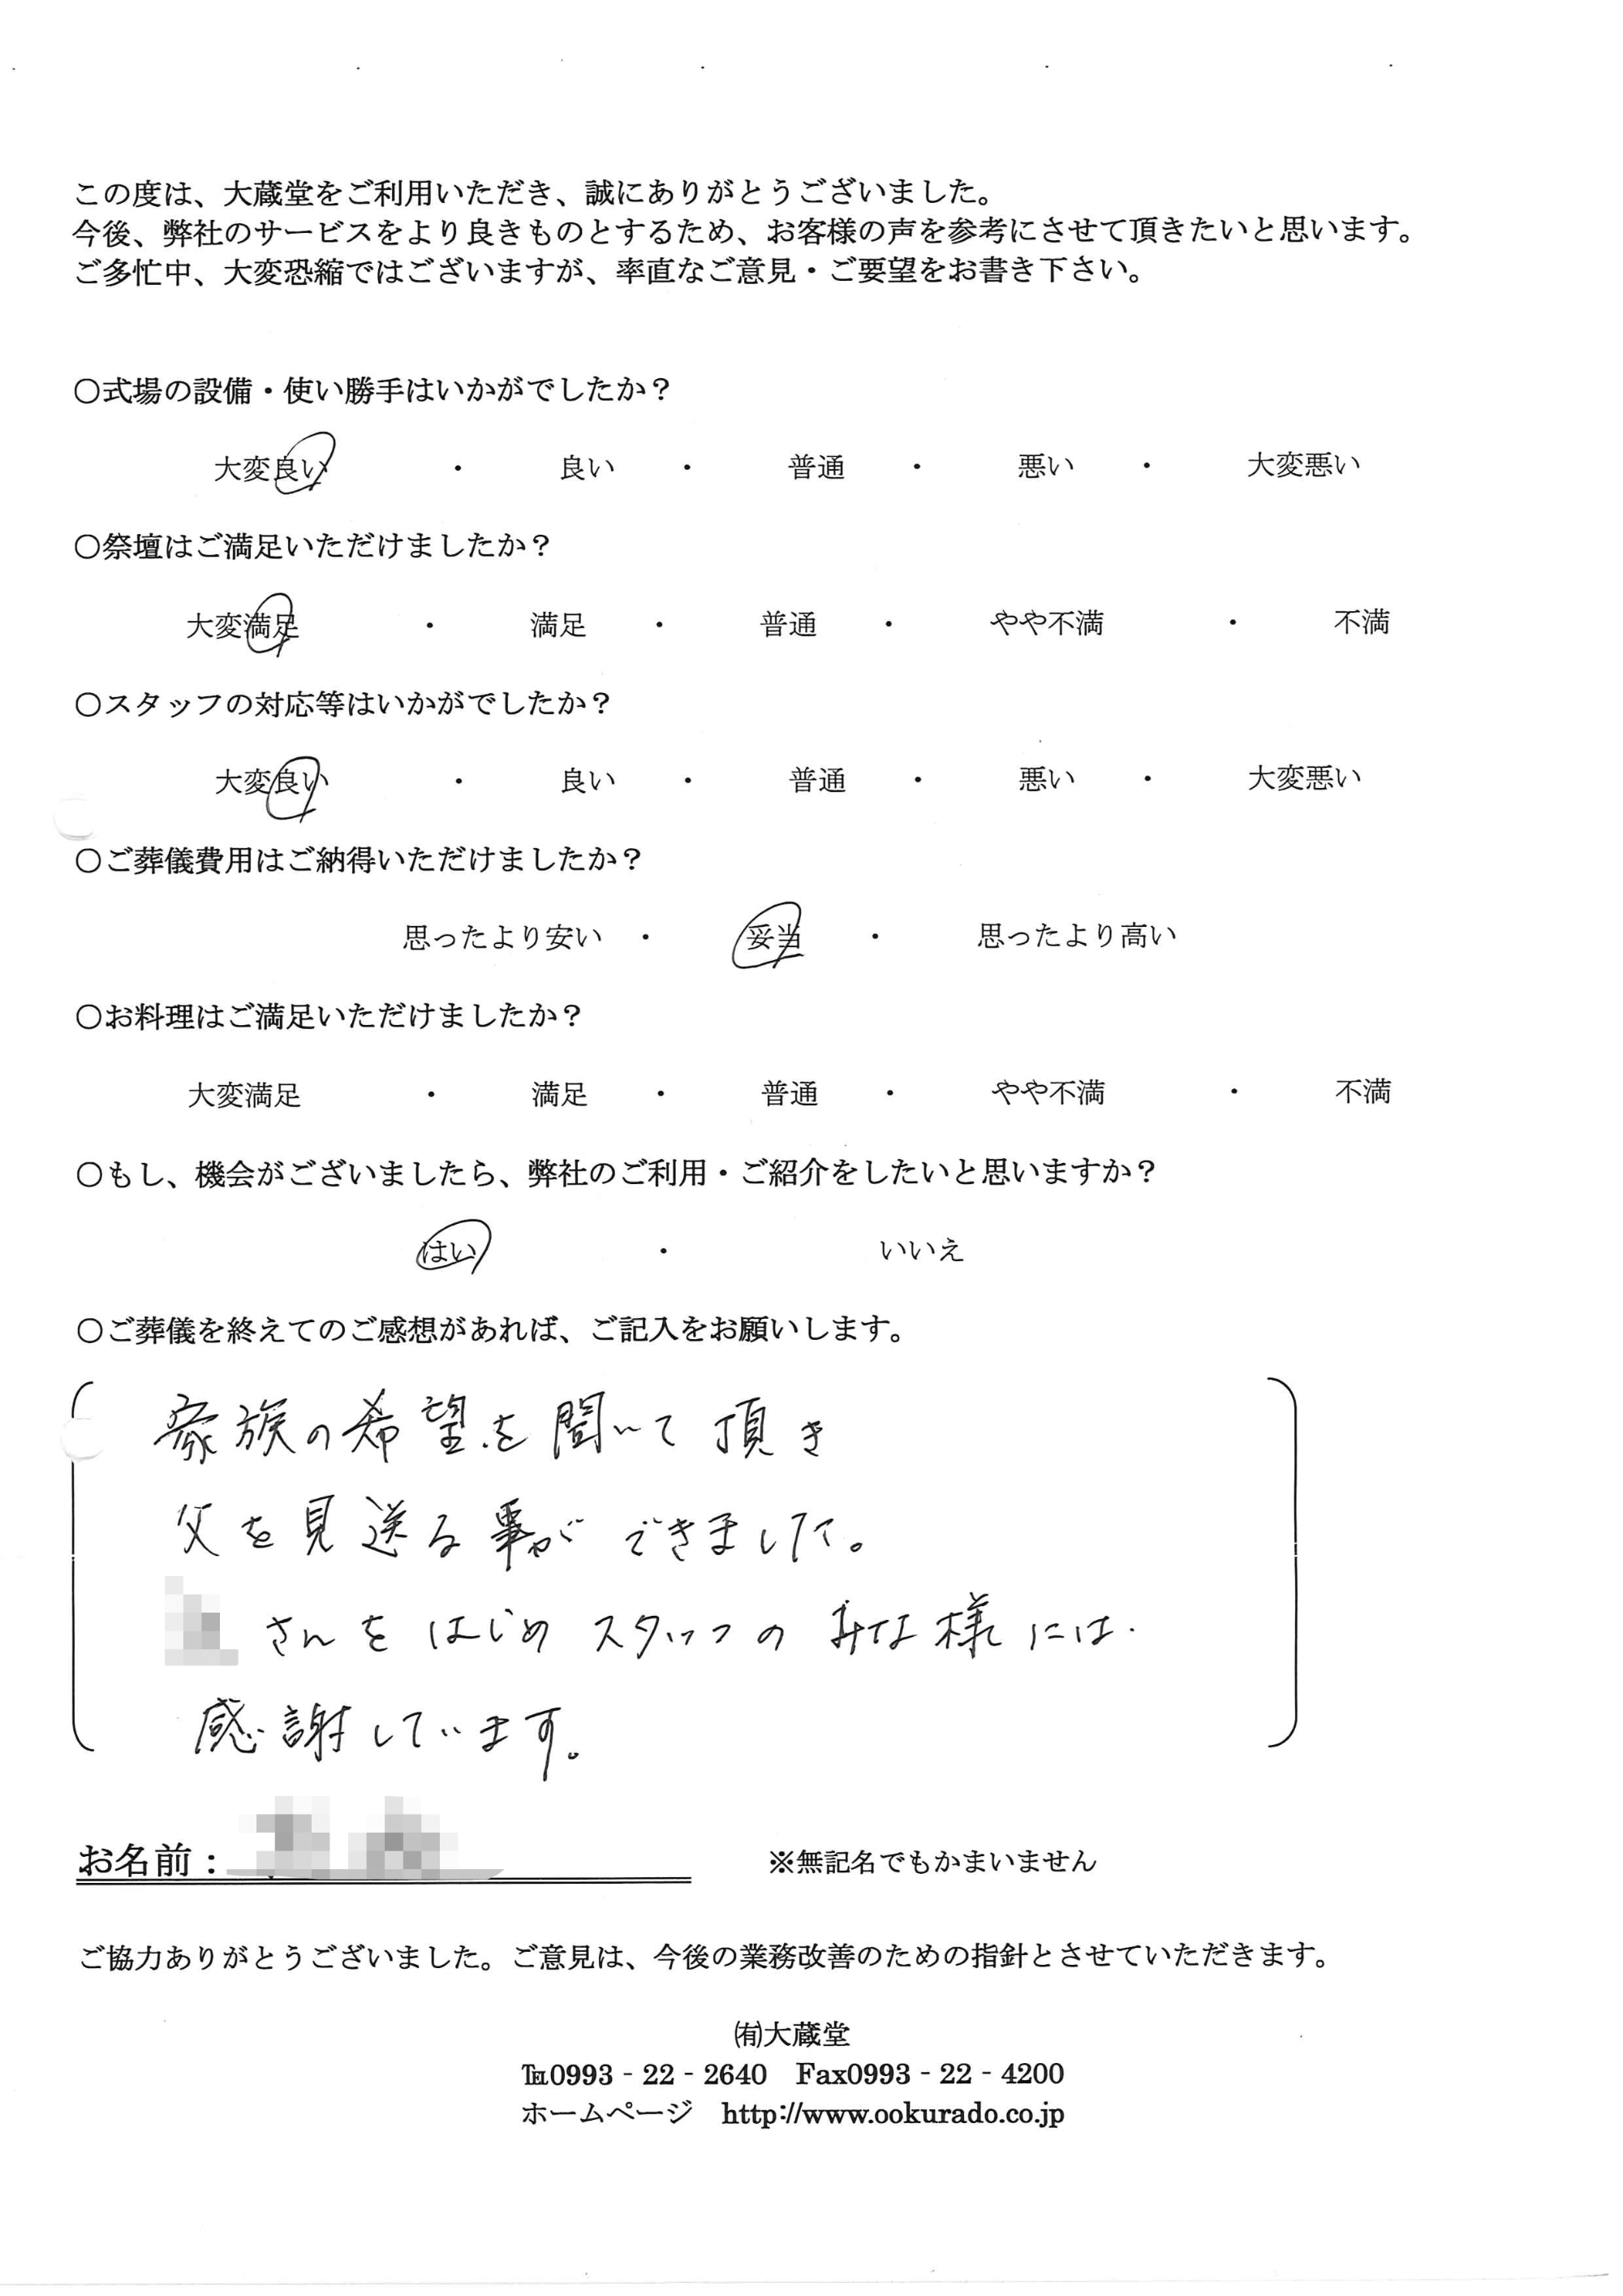 この度は、大蔵堂をご利用いただき、誠にありがとうございました。
今後、弊社のサービスをより良きものとするため、お客様の声を参考にさせて頂きたいと思います。
ご多忙中、大変恐縮ではございますが、率直なご意見・ご要望をお書き下さい。
〇式場の設備・使い勝手はいかがでしたか？
大変良い ・ 良い ・ 普通 ・ 悪い ・ 大変悪い
〇祭壇はご満足いただけましたか？
大変満足 ・ 満足 ・ 普通 ・ やや不満 ・ 不満
〇スタッフの対応等はいかがでしたか？
大変良い ・ 良い ・ 普通 ・ 悪い ・ 大変悪い
〇ご葬儀費用はご納得いただけましたか？
思ったより安い ・ 妥当 ・ 思ったより高い
〇お料理はご満足いただけましたか？
大変満足 ・ 満足 ・ 普通 ・ やや不満 ・ 不満
〇もし、機会がございましたら、弊社のご利用・ご紹介をしたいと思いますか？
はい ・ いいえ
〇ご葬儀を終えてのご感想があれば、ご記入をお願いします。
家族の希望を聞いて頂き
父を見送る事ができました。
さんをはじめスタッフのみな様には
感謝しています。
お名前： ※無記名でもかまいません
ご協力ありがとうございました。ご意見は、今後の業務改善のための指針とさせていただきます。
㈲大蔵堂
℡0993‐22‐2640 Fax0993‐22‐4200
ホームページ http://www.ookurado.co.jp